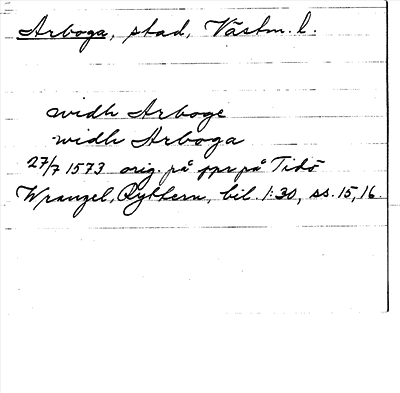 Arboga, stad, Västm. l.
widh Arboge
widh Arboga
27/7 1573 orig. på ppr på Tidö
Wrangel, Rytterne, bil. 1:30, ss. 15, 16.